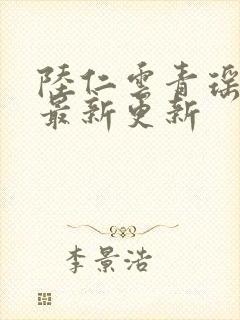 陸仁雲青瑶
最新更新
李景浩